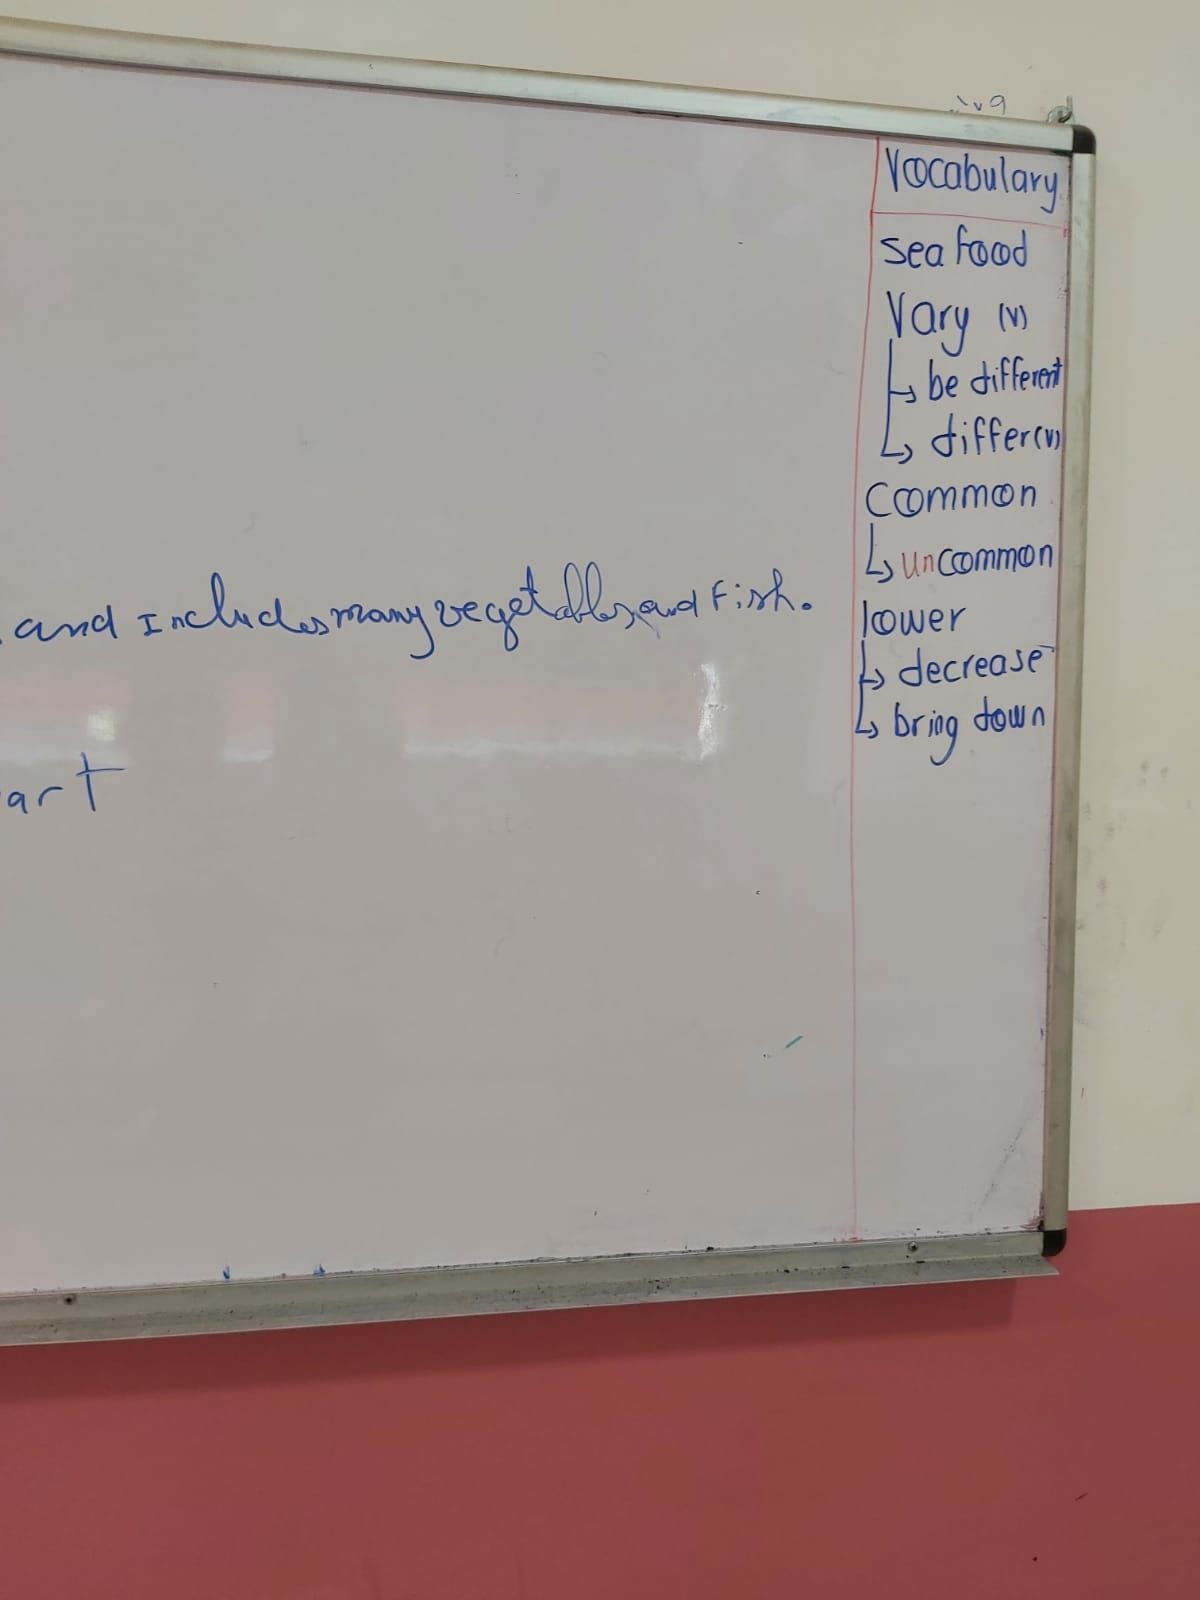 Vocabulary
sea food
Vary (v)
↳ be different
↳ differ (v)
Common
↳ uncommon
lower
↳ decrease
↳ bring down
and Includes many vegetables and Fish.
art